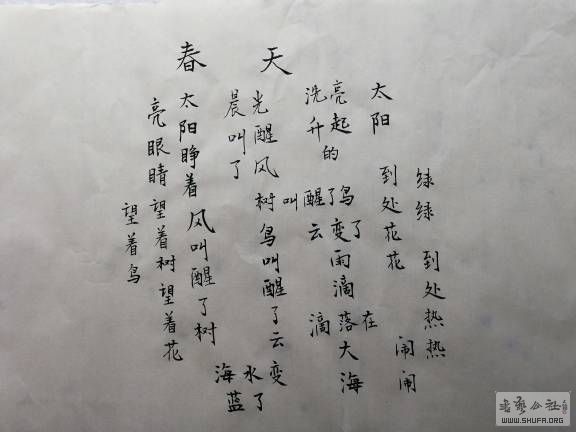 春天
太阳睁着
亮眼睛
望着树望着花
望着鸟
晨光叫醒了风
风叫醒了树
树叫醒了鸟
鸟叫醒了云
云变了雨滴
滴落在大海
海水变蓝了
洗亮升起的
太阳
到处花花
绿绿
到处热热
闹闹
书艺公社
WWW.SHUFA.ORG